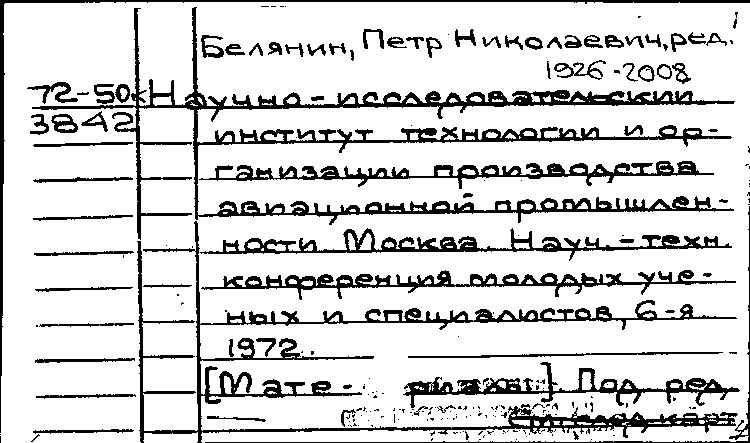 Белянин, Петр Николаевич, ред.
1926-2008
72-50к Научно-исследовательский
3842 институт технологии и ор-
ганизации производства
авиационной промышлен-
ности. Москва. Науч.-техн.
конференция молодых уче-
ных и специалистов, 6-я.
1972.
[Мате- риалы]. Под ред.
См. след. карт.